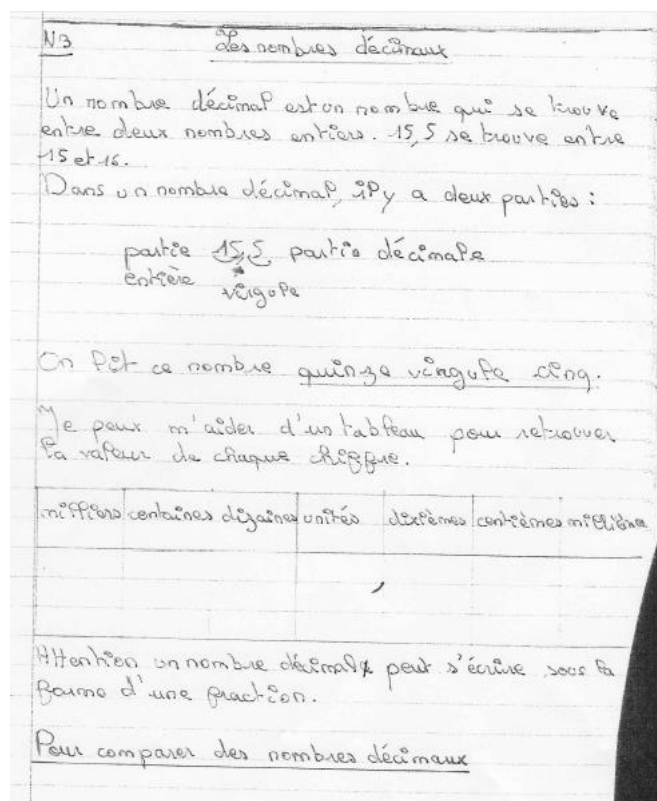 N3 Les nombres décimaux
Un nombre décimal est un nombre qui se trouve
entre deux nombres entiers. 15,5 se trouve entre
15 et 16.
Dans un nombre décimal, il y a deux parties :
partie 15,5 partie décimale
entière virgule
On lit ce nombre quinze virgule cinq.
Je peux m'aider d'un tableau pour retrouver
la valeur de chaque chiffre.
milliers centaines dizaines unités dixièmes centièmes millièmes
,
Attention un nombre décimal peut s'écrire sous la
forme d'une fraction.
Pour comparer des nombres décimaux